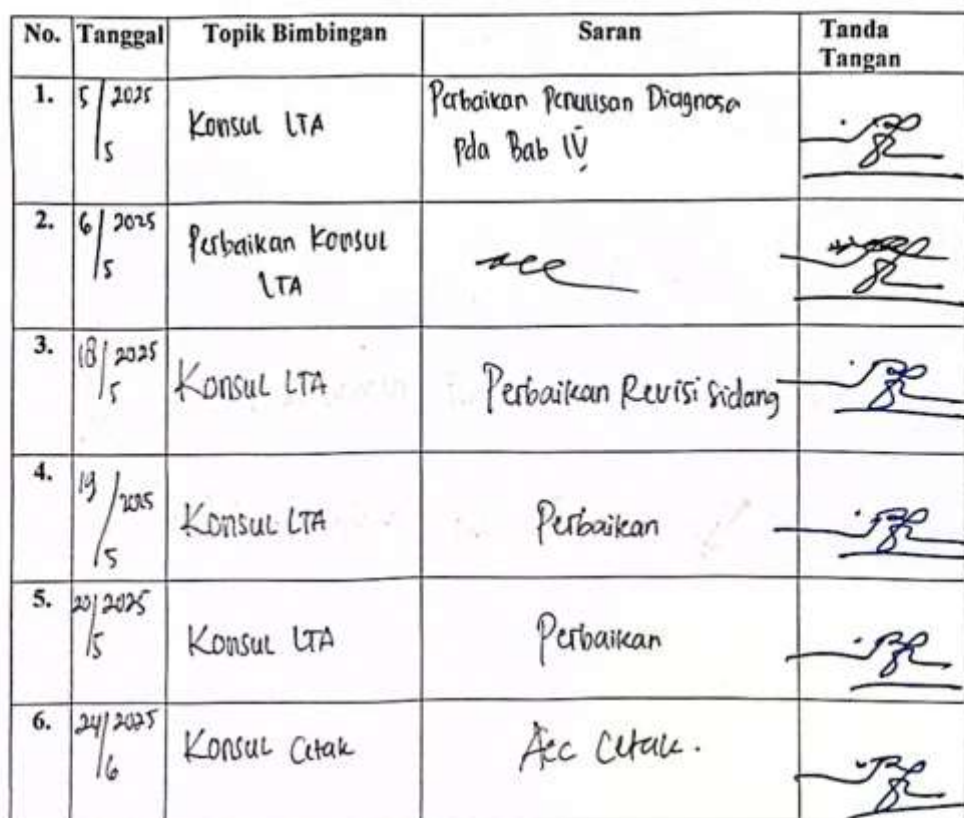 No. Tanggal Topik Bimbingan Saran Tanda Tangan
1. 5/5 2025 Konsul LTA Perbaikan Penulisan Diagnosa
pda Bab IV
2. 6/5 2025 Perbaikan Konsul
LTA acc
3. 18/5 2025 Konsul LTA Perbaikan Revisi Sidang
4. 19/5 2025 Konsul LTA Perbaikan
5. 20/5 2025 Konsul LTA Perbaikan
6. 24/6 2025 Konsul Cetak Acc Cetak.